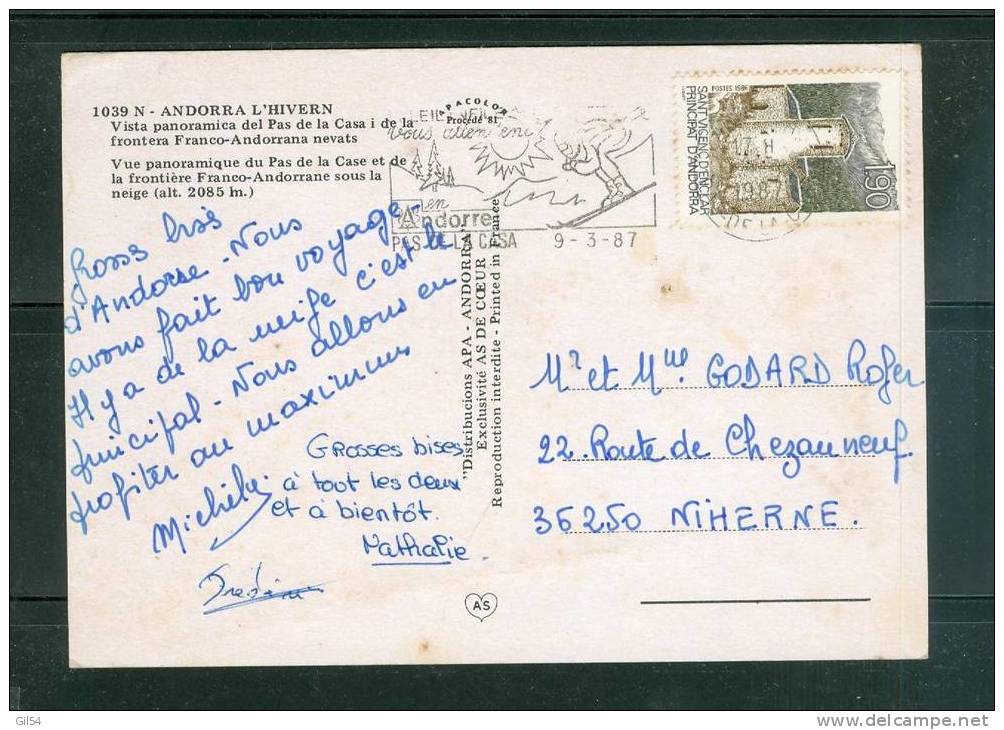 1039 N - ANDORRA L'HIVERN
Vista panoramica del Pas de la Casa i de la
frontera Franco-Andorrana nevats
Vue panoramique du Pas de la Case et de
la frontière Franco-Andorrane sous la
neige (alt. 2085 m.)
APACOLOR
Procédé 81
vous attendent
en
Andorre
PAS LA CASA 9-3-87
POSTES 1986
SANT VICENÇ D'ENCLAR
PRINCIPAT D'ANDORRA
1,90
17 H
1987
Gross bises
d'Andorre - Nous
avons fait bon voyage -
Il y a de la neige c'est le
principal - Nous allons en
profiter au maximum
Michèle
Grosses bises
à tout les deux
et à bientôt.
Nathalie.
"Distribucions APA - ANDORRA"
Exclusivité AS DE CŒUR
Reproduction interdite - Printed in France
Mr et Mme GODARD Roger
22 Route de Chezauneuf
36250 NIHERNE.
AS
Gil54
www.delcampe.net